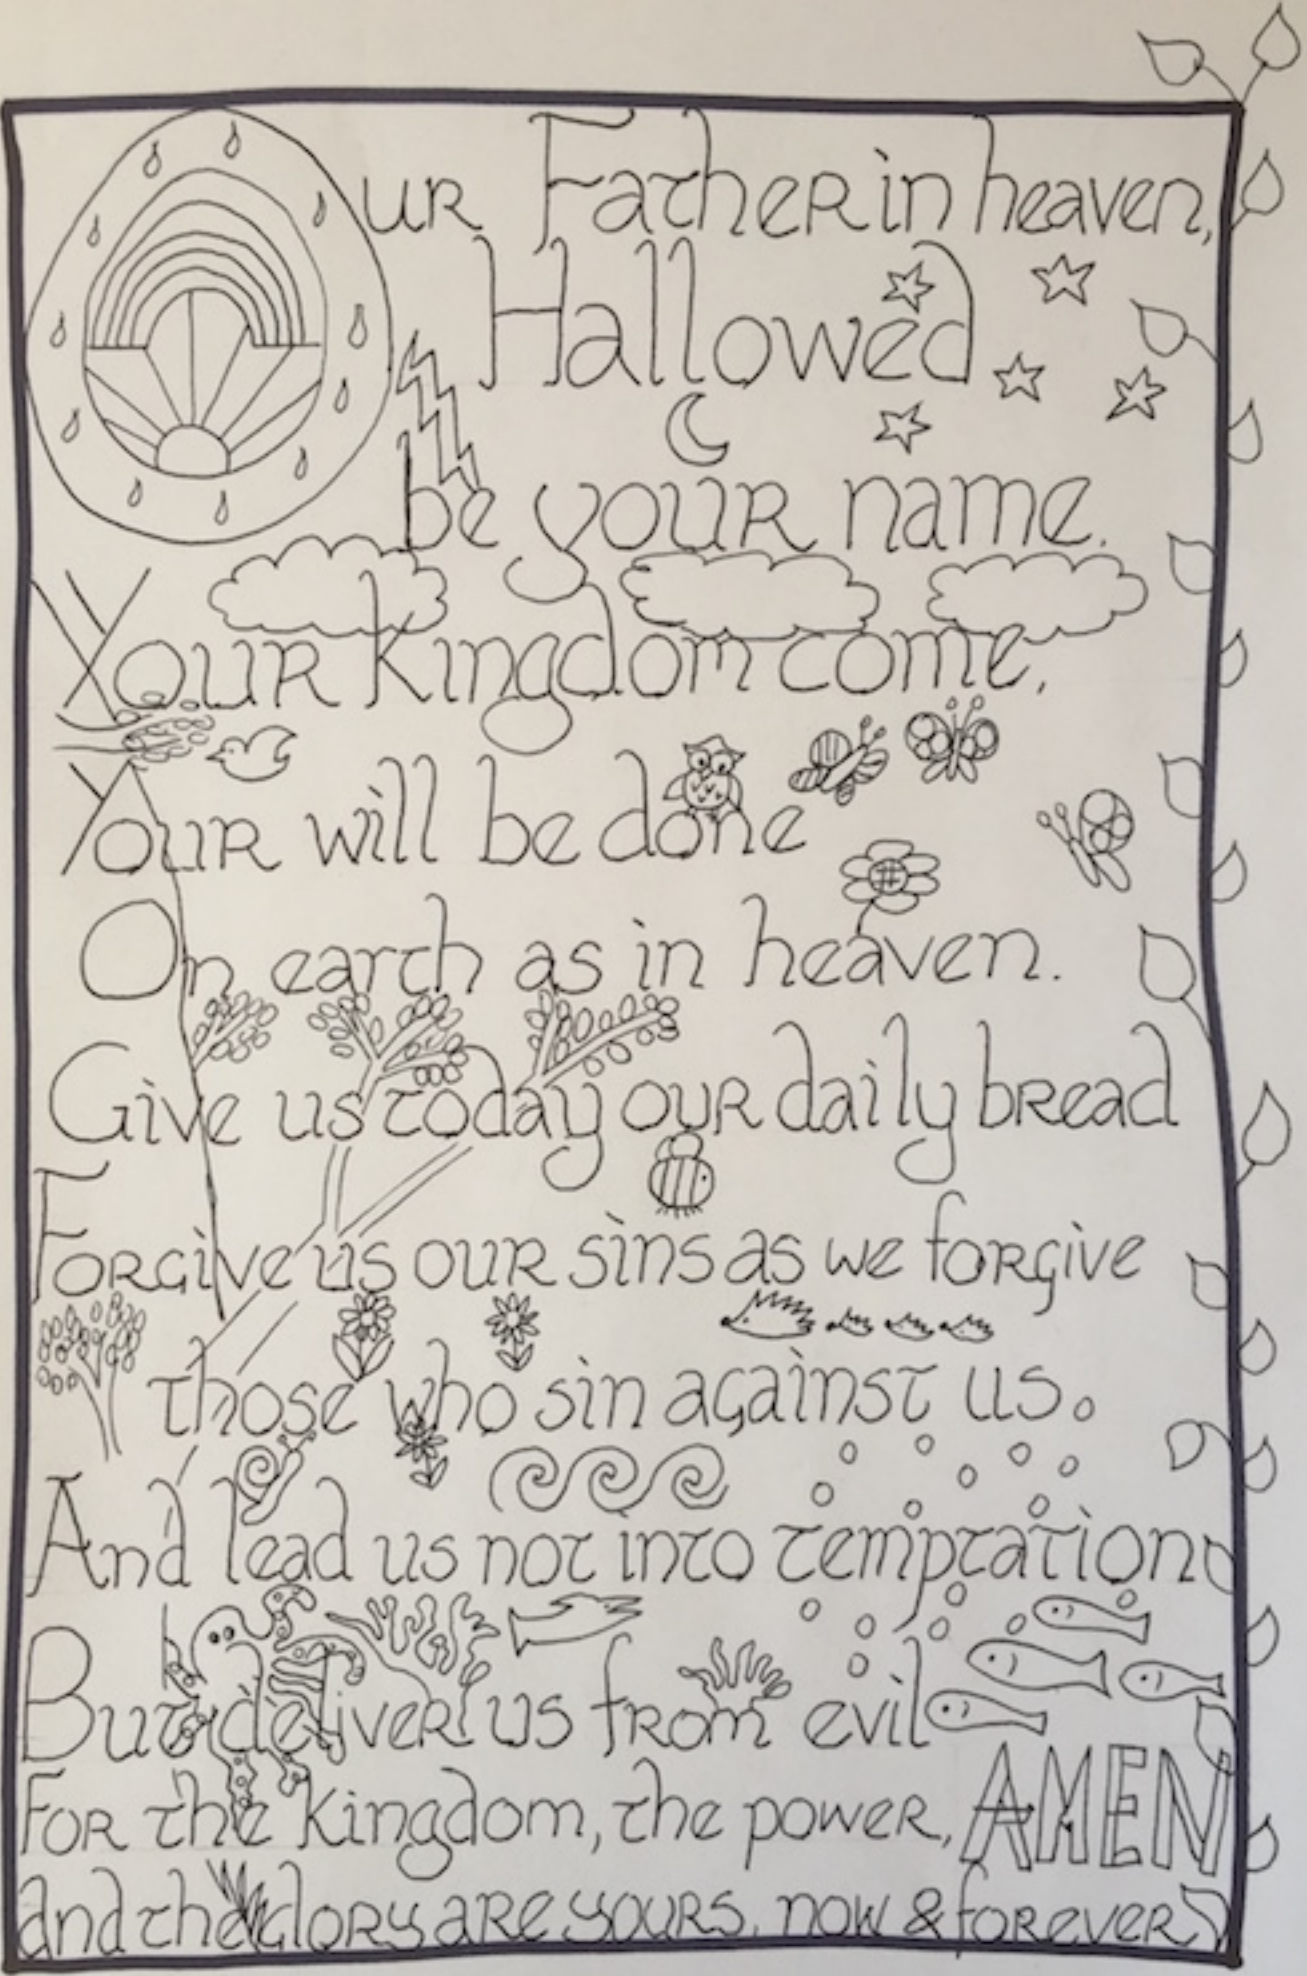 Our Father in heaven,
Hallowed
be your name.
Your kingdom come,
Your will be done
On earth as in heaven.
Give us today our daily bread
Forgive us our sins as we forgive
those who sin against us.
And lead us not into temptation
But deliver us from evil
For the kingdom, the power, AMEN
and the glory are yours. now & forever